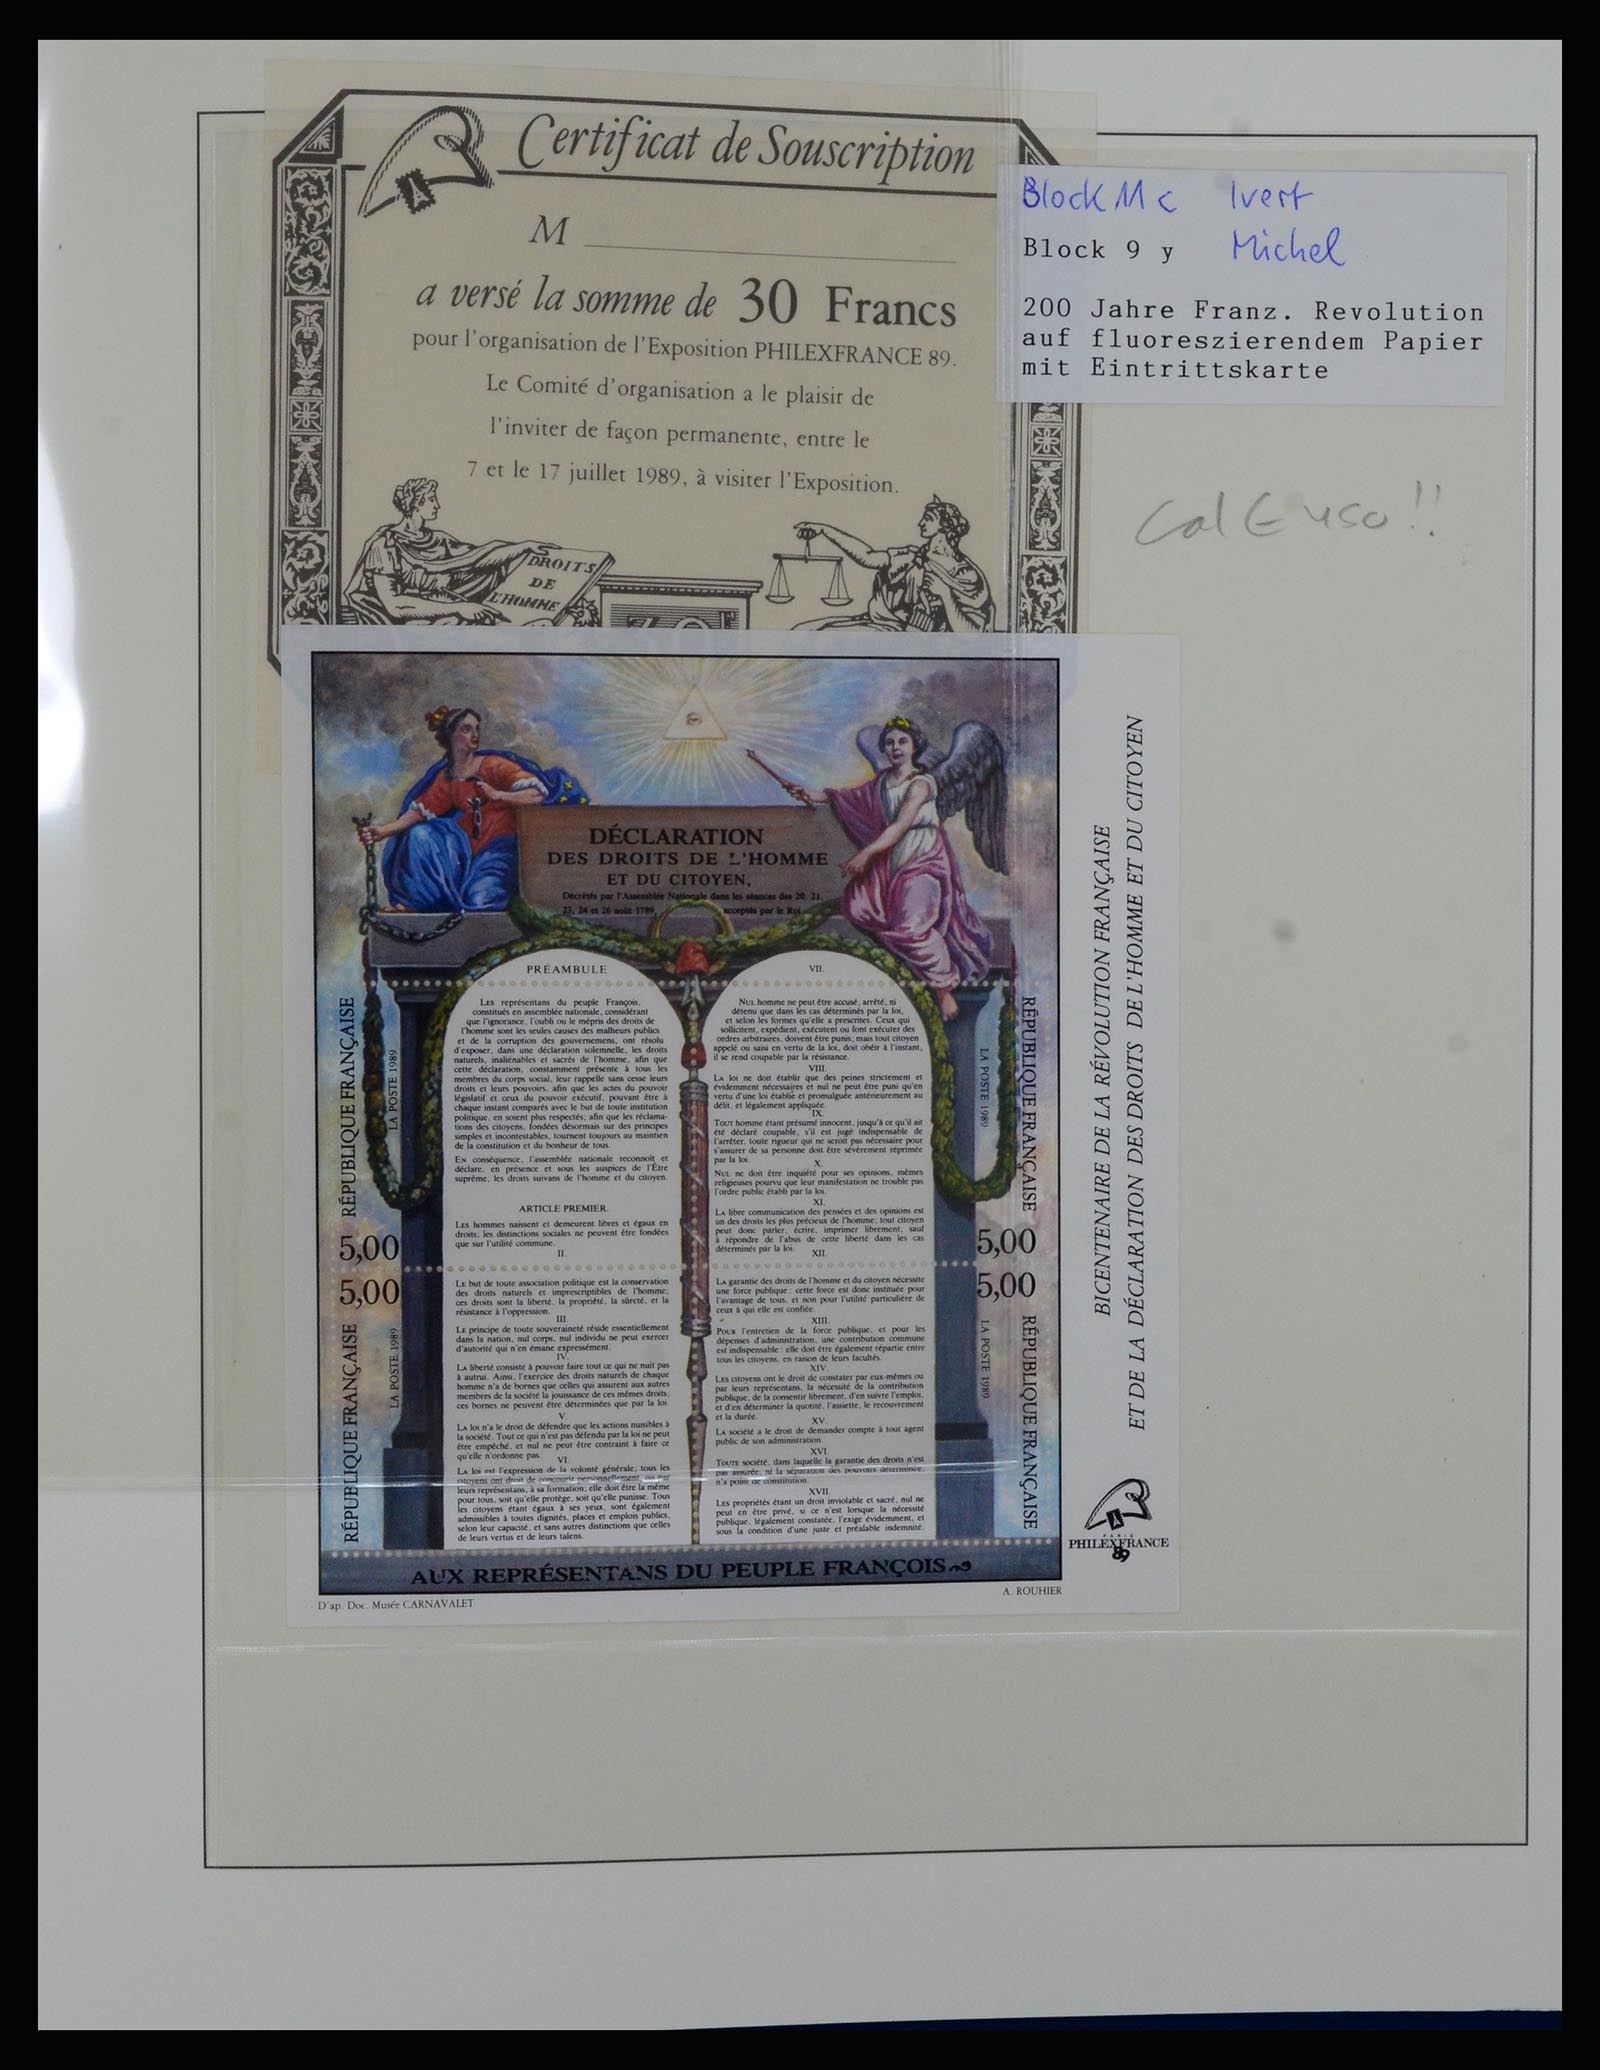 Certificat de Souscription
M
a versé la somme de 30 Francs
pour l'organisation de l'Exposition PHILEXFRANCE 89.
Le Comité d'organisation a le plaisir de
l'inviter de façon permanente, entre le
7 et le 17 juillet 1989, à visiter l'Exposition.
DROITS
DE
L'HOMME
Block 11 c Ivert
Block 9 y Michel
200 Jahre Franz. Revolution
auf fluoreszierendem Papier
mit Eintrittskarte
Cal € 450!!
DÉCLARATION
DES DROITS DE L'HOMME
ET DU CITOYEN,
Décrétés par l'Assemblée Nationale dans les séances des 20, 21,
23, 24 et 26 août 1789, acceptés par le Roi
PRÉAMBULE
LES représentans du peuple François,
constitués en assemblée nationale, considérant
que l'ignorance, l'oubli ou le mépris des droits de
l'homme sont les seules causes des malheurs publics
et de la corruption des gouvernemens, ont résolu
d'exposer, dans une déclaration solemnelle, les droits
naturels, inaliénables et sacrés de l'homme, afin que
cette déclaration, constamment présente à tous les
membres du corps social, leur rappelle sans cesse leurs
droits et leurs pouvoirs, afin que les actes du pouvoir
législatif et ceux du pouvoir exécutif, pouvant être à
chaque instant comparés avec le but de toute institution
politique, en soient plus respectés; afin que les réclama-
tions des citoyens, fondées désormais sur des principes
simples et incontestables, tournent toujours au maintien
de la constitution et du bonheur de tous.
EN conséquence, l'assemblée nationale reconnoît et
déclare, en présence et sous les auspices de l'Être
suprême, les droits suivans de l'homme et du citoyen.
ARTICLE PREMIER.
LES hommes naissent et demeurent libres et égaux en
droits; les distinctions sociales ne peuvent être fondées
que sur l'utilité commune.
II.
LE but de toute association politique est la conservation
des droits naturels et imprescriptibles de l'homme;
ces droits sont la liberté, la propriété, la sûreté, et la
résistance à l'oppression.
III.
LE principe de toute souveraineté réside essentiellement
dans la nation, nul corps, nul individu ne peut exercer
d'autorité qui n'en émane expressément.
IV.
LA liberté consiste à pouvoir faire tout ce qui ne nuit pas
à autrui. Ainsi, l'exercice des droits naturels de chaque
homme n'a de bornes que celles qui assurent aux autres
membres de la société la jouissance de ces mêmes droits;
ces bornes ne peuvent être déterminées que par la loi.
V.
LA loi n'a le droit de défendre que les actions nuisibles à
la société. Tout ce qui n'est pas défendu par la loi ne peut
être empêché, et nul ne peut être contraint à faire ce
qu'elle n'ordonne pas.
VI.
LA loi est l'expression de la volonté générale; tous les
citoyens ont droit de concourir personnellement, ou par
leurs représentans, à sa formation; elle doit être la même
pour tous, soit qu'elle protège, soit qu'elle punisse. Tous
les citoyens étant égaux à ses yeux, sont également
admissibles à toutes dignités, places et emplois publics,
selon leur capacité, et sans autres distinctions que celles
de leurs vertus et de leurs talens.
VII.
NUL homme ne peut être accusé, arrêté, ni
détenu que dans les cas déterminés par la loi,
et selon les formes qu'elle a prescrites. Ceux qui
sollicitent, expédient, exécutent ou font exécuter des
ordres arbitraires, doivent être punis; mais tout citoyen
appelé ou saisi en vertu de la loi, doit obéir à l'instant,
il se rend coupable par la résistance.
VIII.
LA loi ne doit établir que des peines strictement et
évidemment nécessaires et nul ne peut être puni qu'en
vertu d'une loi établie et promulguée antérieurement au
délit, et légalement appliquée.
IX.
TOUT homme étant présumé innocent, jusqu'à ce qu'il ait
été déclaré coupable, s'il est jugé indispensable de
l'arrêter, toute rigueur qui ne seroit pas nécessaire pour
s'assurer de sa personne doit être sévèrement réprimée
par la loi.
X.
NUL ne doit être inquiété pour ses opinions, mêmes
religieuses pourvu que leur manifestation ne trouble pas
l'ordre public établi par la loi.
XI.
LA libre communication des pensées et des opinions est
un des droits les plus précieux de l'homme; tout citoyen
peut donc parler, écrire, imprimer librement; sauf
à répondre de l'abus de cette liberté dans les cas
déterminés par la loi.
XII.
LA garantie des droits de l'homme et du citoyen nécessite
une force publique : cette force est donc instituée pour
l'avantage de tous, et non pour l'utilité particulière de
ceux à qui elle est confiée.
XIII.
POUR l'entretien de la force publique, et pour les
dépenses d'administration, une contribution commune
est indispensable : elle doit être également répartie entre
tous les citoyens, en raison de leurs facultés.
XIV.
LES citoyens ont le droit de constater par eux-mêmes ou
par leurs représentans, la nécessité de la contribution
publique, de la consentir librement, d'en suivre l'emploi,
et d'en déterminer la quotité, l'assiette, le recouvrement
et la durée.
XV.
LA société a le droit de demander compte à tout agent
public de son administration.
XVI.
TOUTE société, dans laquelle la garantie des droits n'est
pas assurée, ni la séparation des pouvoirs déterminée,
n'a point de constitution.
XVII.
LES propriétés étant un droit inviolable et sacré, nul ne
peut en être privé, si ce n'est lorsque la nécessité
publique, légalement constatée, l'exige évidemment, et
sous la condition d'une juste et préalable indemnité.
RÉPUBLIQUE FRANÇAISE
LA POSTE 1989
5,00
5,00
RÉPUBLIQUE FRANÇAISE
LA POSTE 1989
RÉPUBLIQUE FRANÇAISE
LA POSTE 1989
5,00
5,00
RÉPUBLIQUE FRANÇAISE
LA POSTE 1989
AUX REPRÉSENTANS DU PEUPLE FRANÇOIS
D'ap. Doc. Musée CARNAVALET
A. ROUHIER
BICENTENAIRE DE LA RÉVOLUTION FRANÇAISE
ET DE LA DÉCLARATION DES DROITS DE L'HOMME ET DU CITOYEN
PARIS
PHILEXFRANCE
89